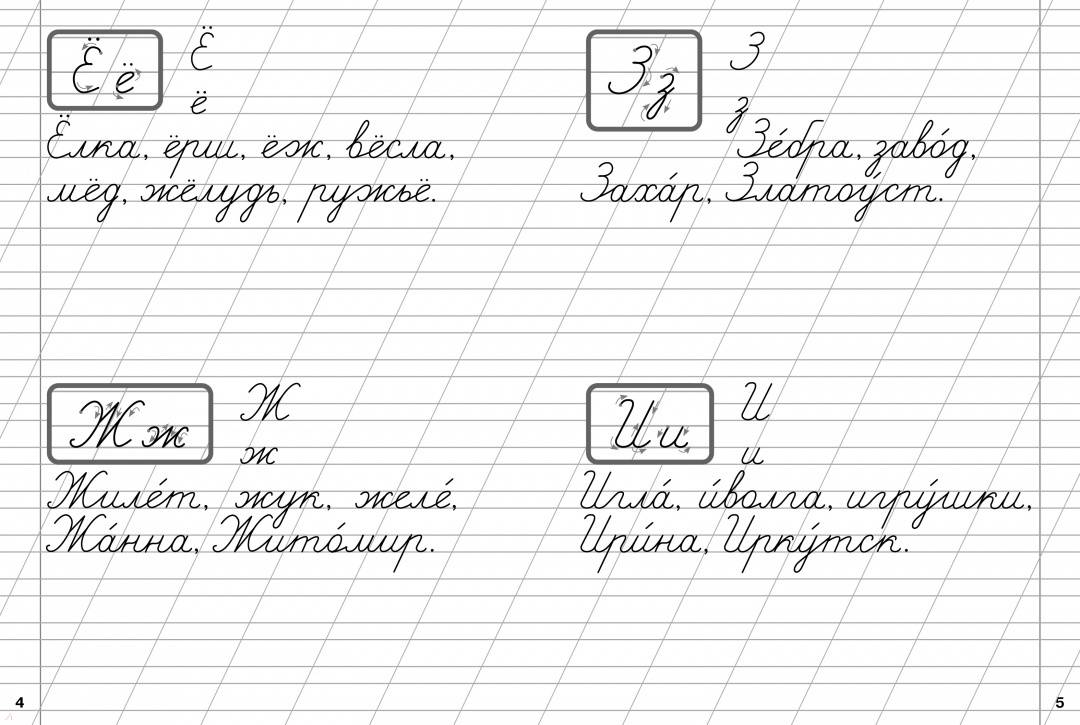 Ё ё Ё
ё
Ёлка, ёрш, ёж, вёсла,
мёд, жёлудь, ружьё.
Ж ж Ж
ж
Жиле́т, жук, желе́,
Жа́нна, Жито́мир.
4
З з З
з
Зе́бра, заво́д,
Заха́р, Златоу́ст.
И и И
и
Игла́, и́волга, игру́шки,
Ири́на, Ирку́тск.
5